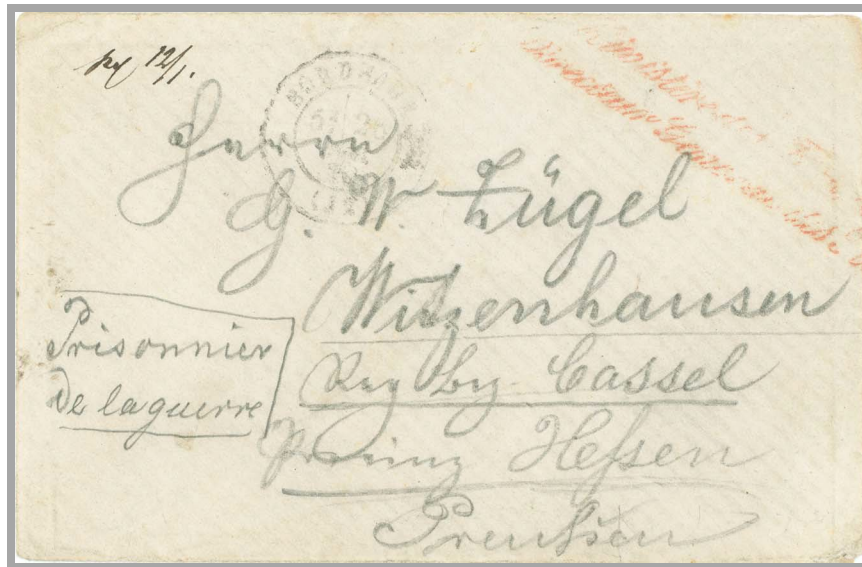 12/1.
BORDEAUX
Herrn
G. W. Zügel
Witzenhausen
Reg Bez Cassel
Provinz Hessen
Preußen
Prisonnier
De la guerre